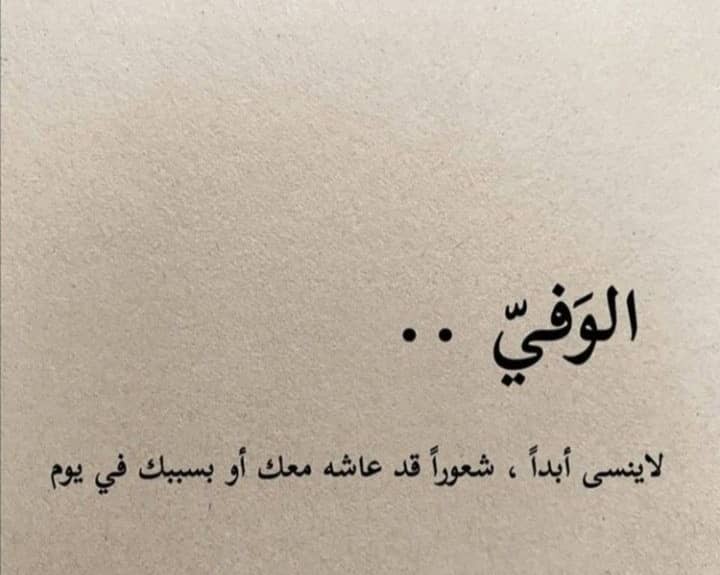 الوَفيّ ..
لاينسى أبداً ، شعوراً قد عاشه معك أو بسببك في يوم